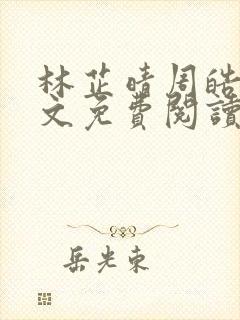 林芷晴周皓
文免費閱讀
岳光東